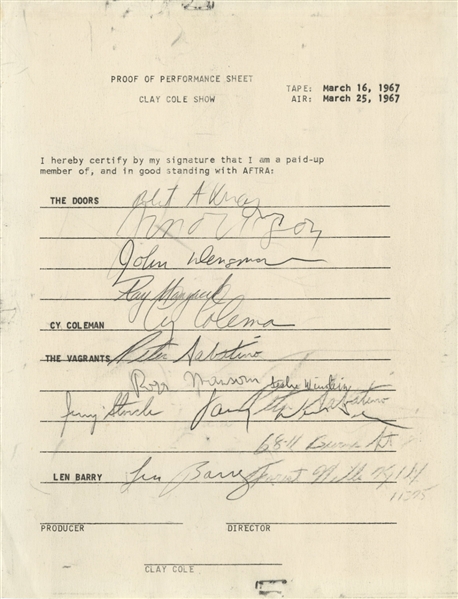 PROOF OF PERFORMANCE SHEET
TAPE: March 16, 1967
CLAY COLE SHOW
AIR: March 25, 1967
I hereby certify by my signature that I am a paid-up
member of, and in good standing with AFTRA:
THE DOORS Robt A Krieg
John Densmore
Ray
CY. COLEMAN Cy Coleman
THE VAGRANTS Peter Sabatino
Roger Leslie Weinstein
Jerry Storch Peter Sabatino
68-11
LEN BARRY Len Barry Forest Hills N.Y.
11375
PRODUCER DIRECTOR
CLAY COLE